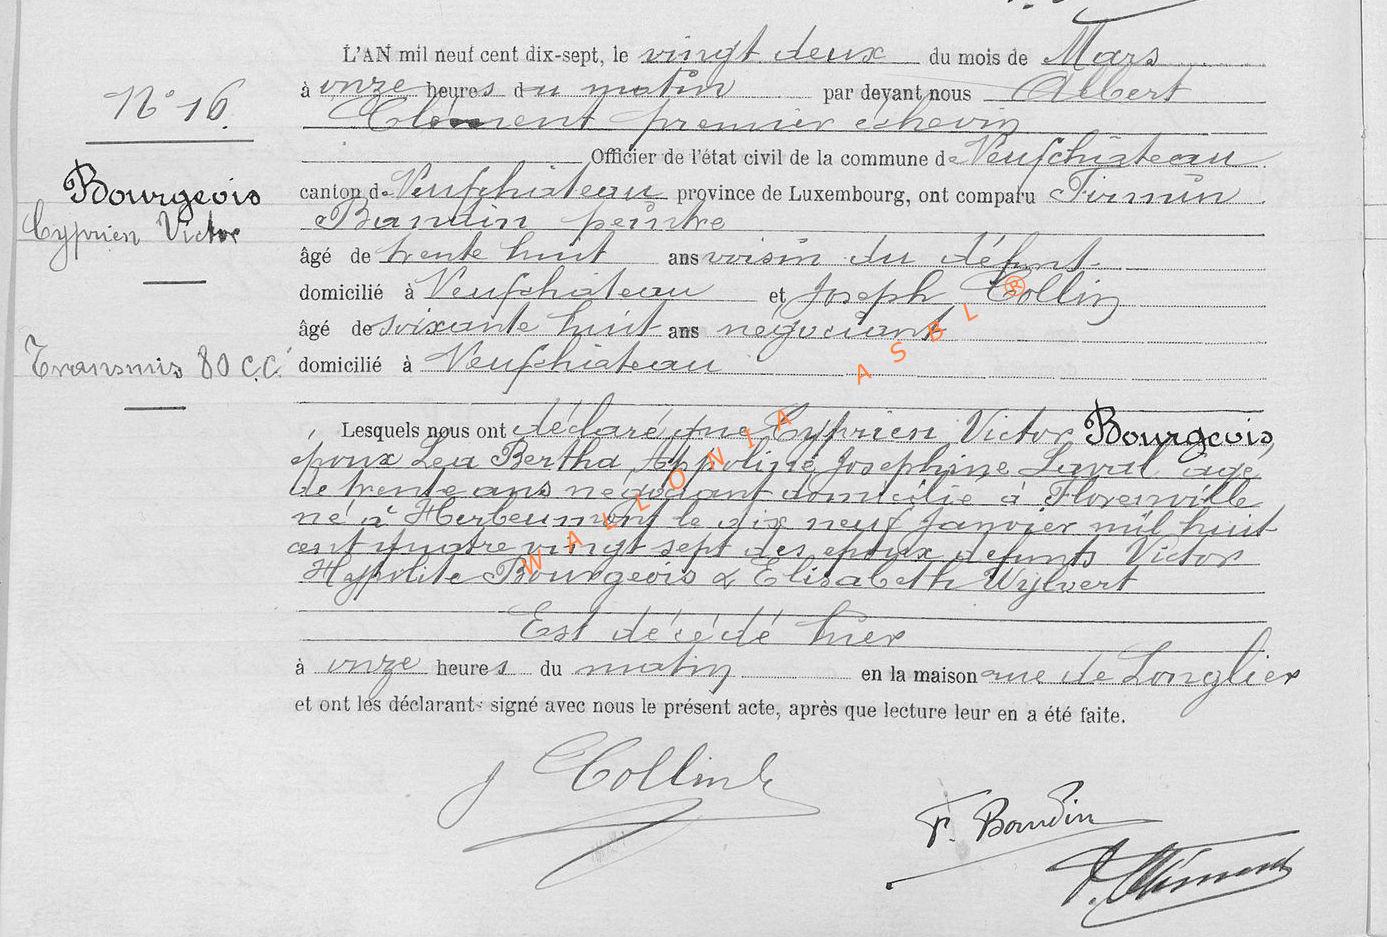 N° 16.
Bourgeois
Cyprien Victor
Transmis 80 C.C.
L'AN mil neuf cent dix-sept, le vingt deux du mois de Mars
à onze heures du matin par devant nous Albert
Clément premier échevin
Officier de l'état civil de la commune de Neufchâteau
canton de Neufchâteau province de Luxembourg, ont comparu Firmin
Baudin peintre
âgé de trente huit ans voisin du défunt
domicilié à Neufchâteau et Joseph Collin
âgé de soixante huit ans négociant
domicilié à Neufchâteau
Lesquels nous ont déclaré que Cyprien Victor Bourgeois,
époux Lea Bertha Appoline Joséphine Laval âgé
de trente ans négociant domicilié à Florenville
né à Herbeumont le dix neuf Janvier mil huit
cent quatre vingt sept des époux défunts Victor
Hypolite Bourgeois & Elisabeth Wylvert
Est décédé hier
à onze heures du matin en la maison rue de Longlier
et ont les déclarants signé avec nous le présent acte, après que lecture leur en a été faite.
J Collin
F. Baudin
A. Clément
WALLONIA ASBL ®